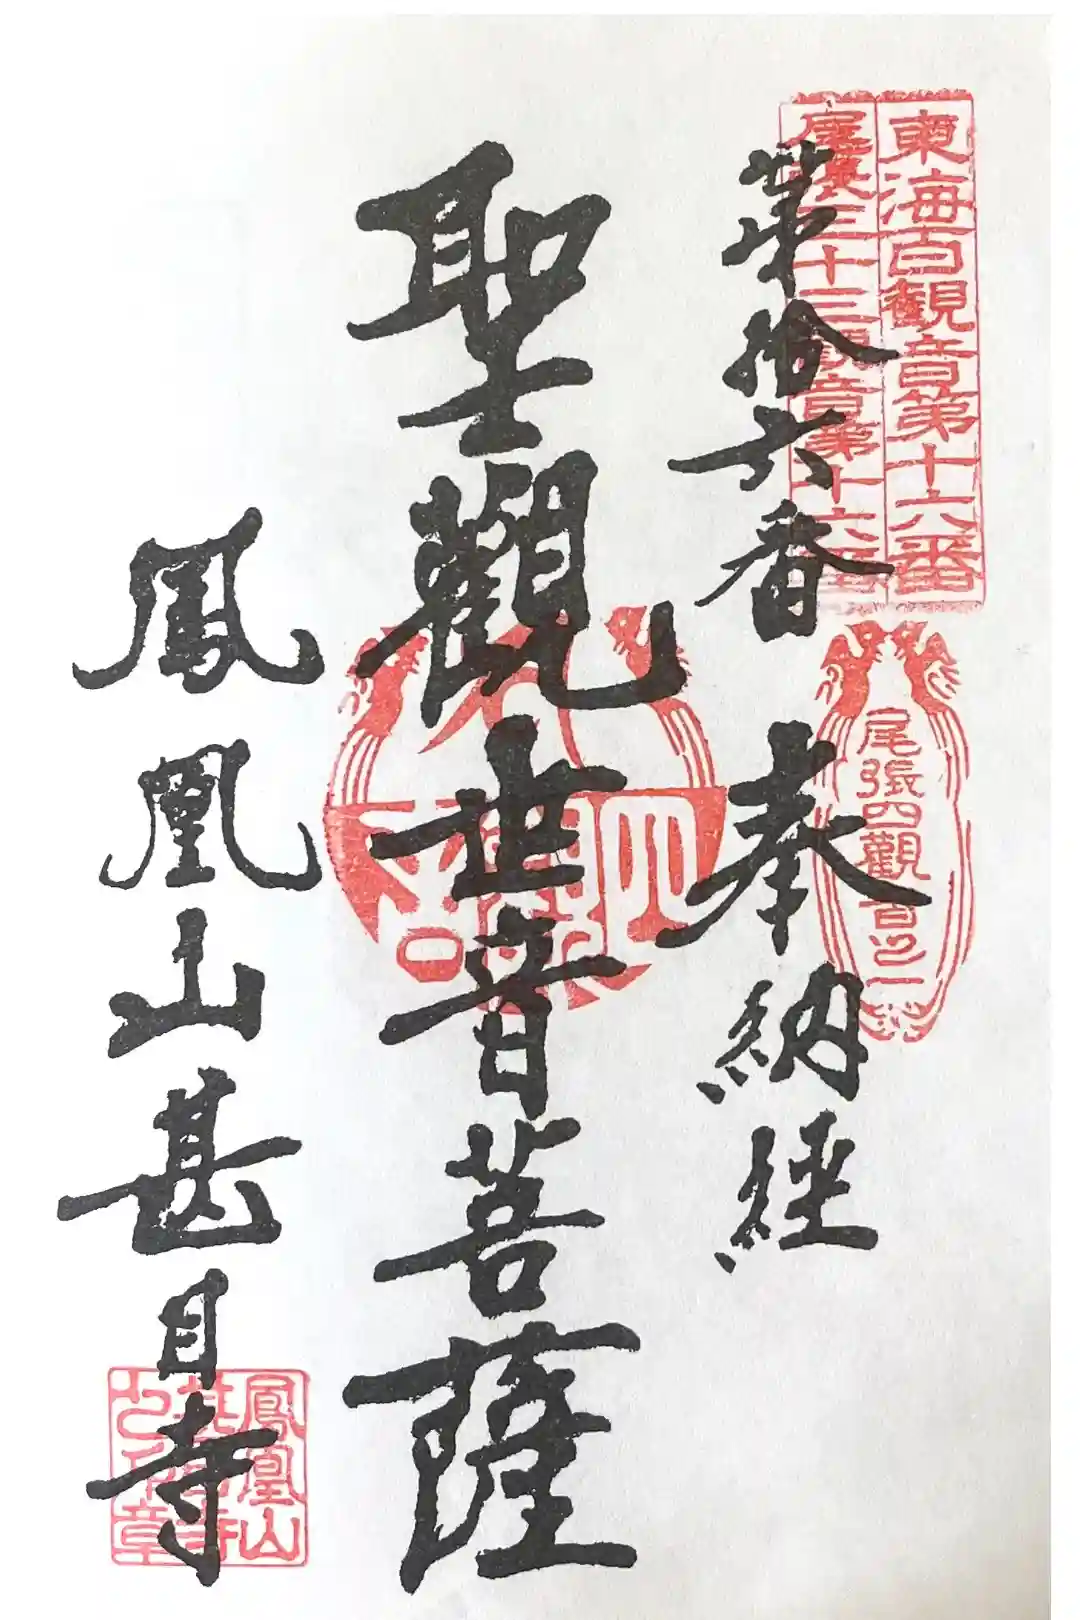 東海百観音第十六番
尾張三十三観音第十六番
尾張四觀音之一
第拾六番 奉納経
聖觀世音菩薩
鳳凰山甚目寺
鳳凰山
甚目寺
之印章